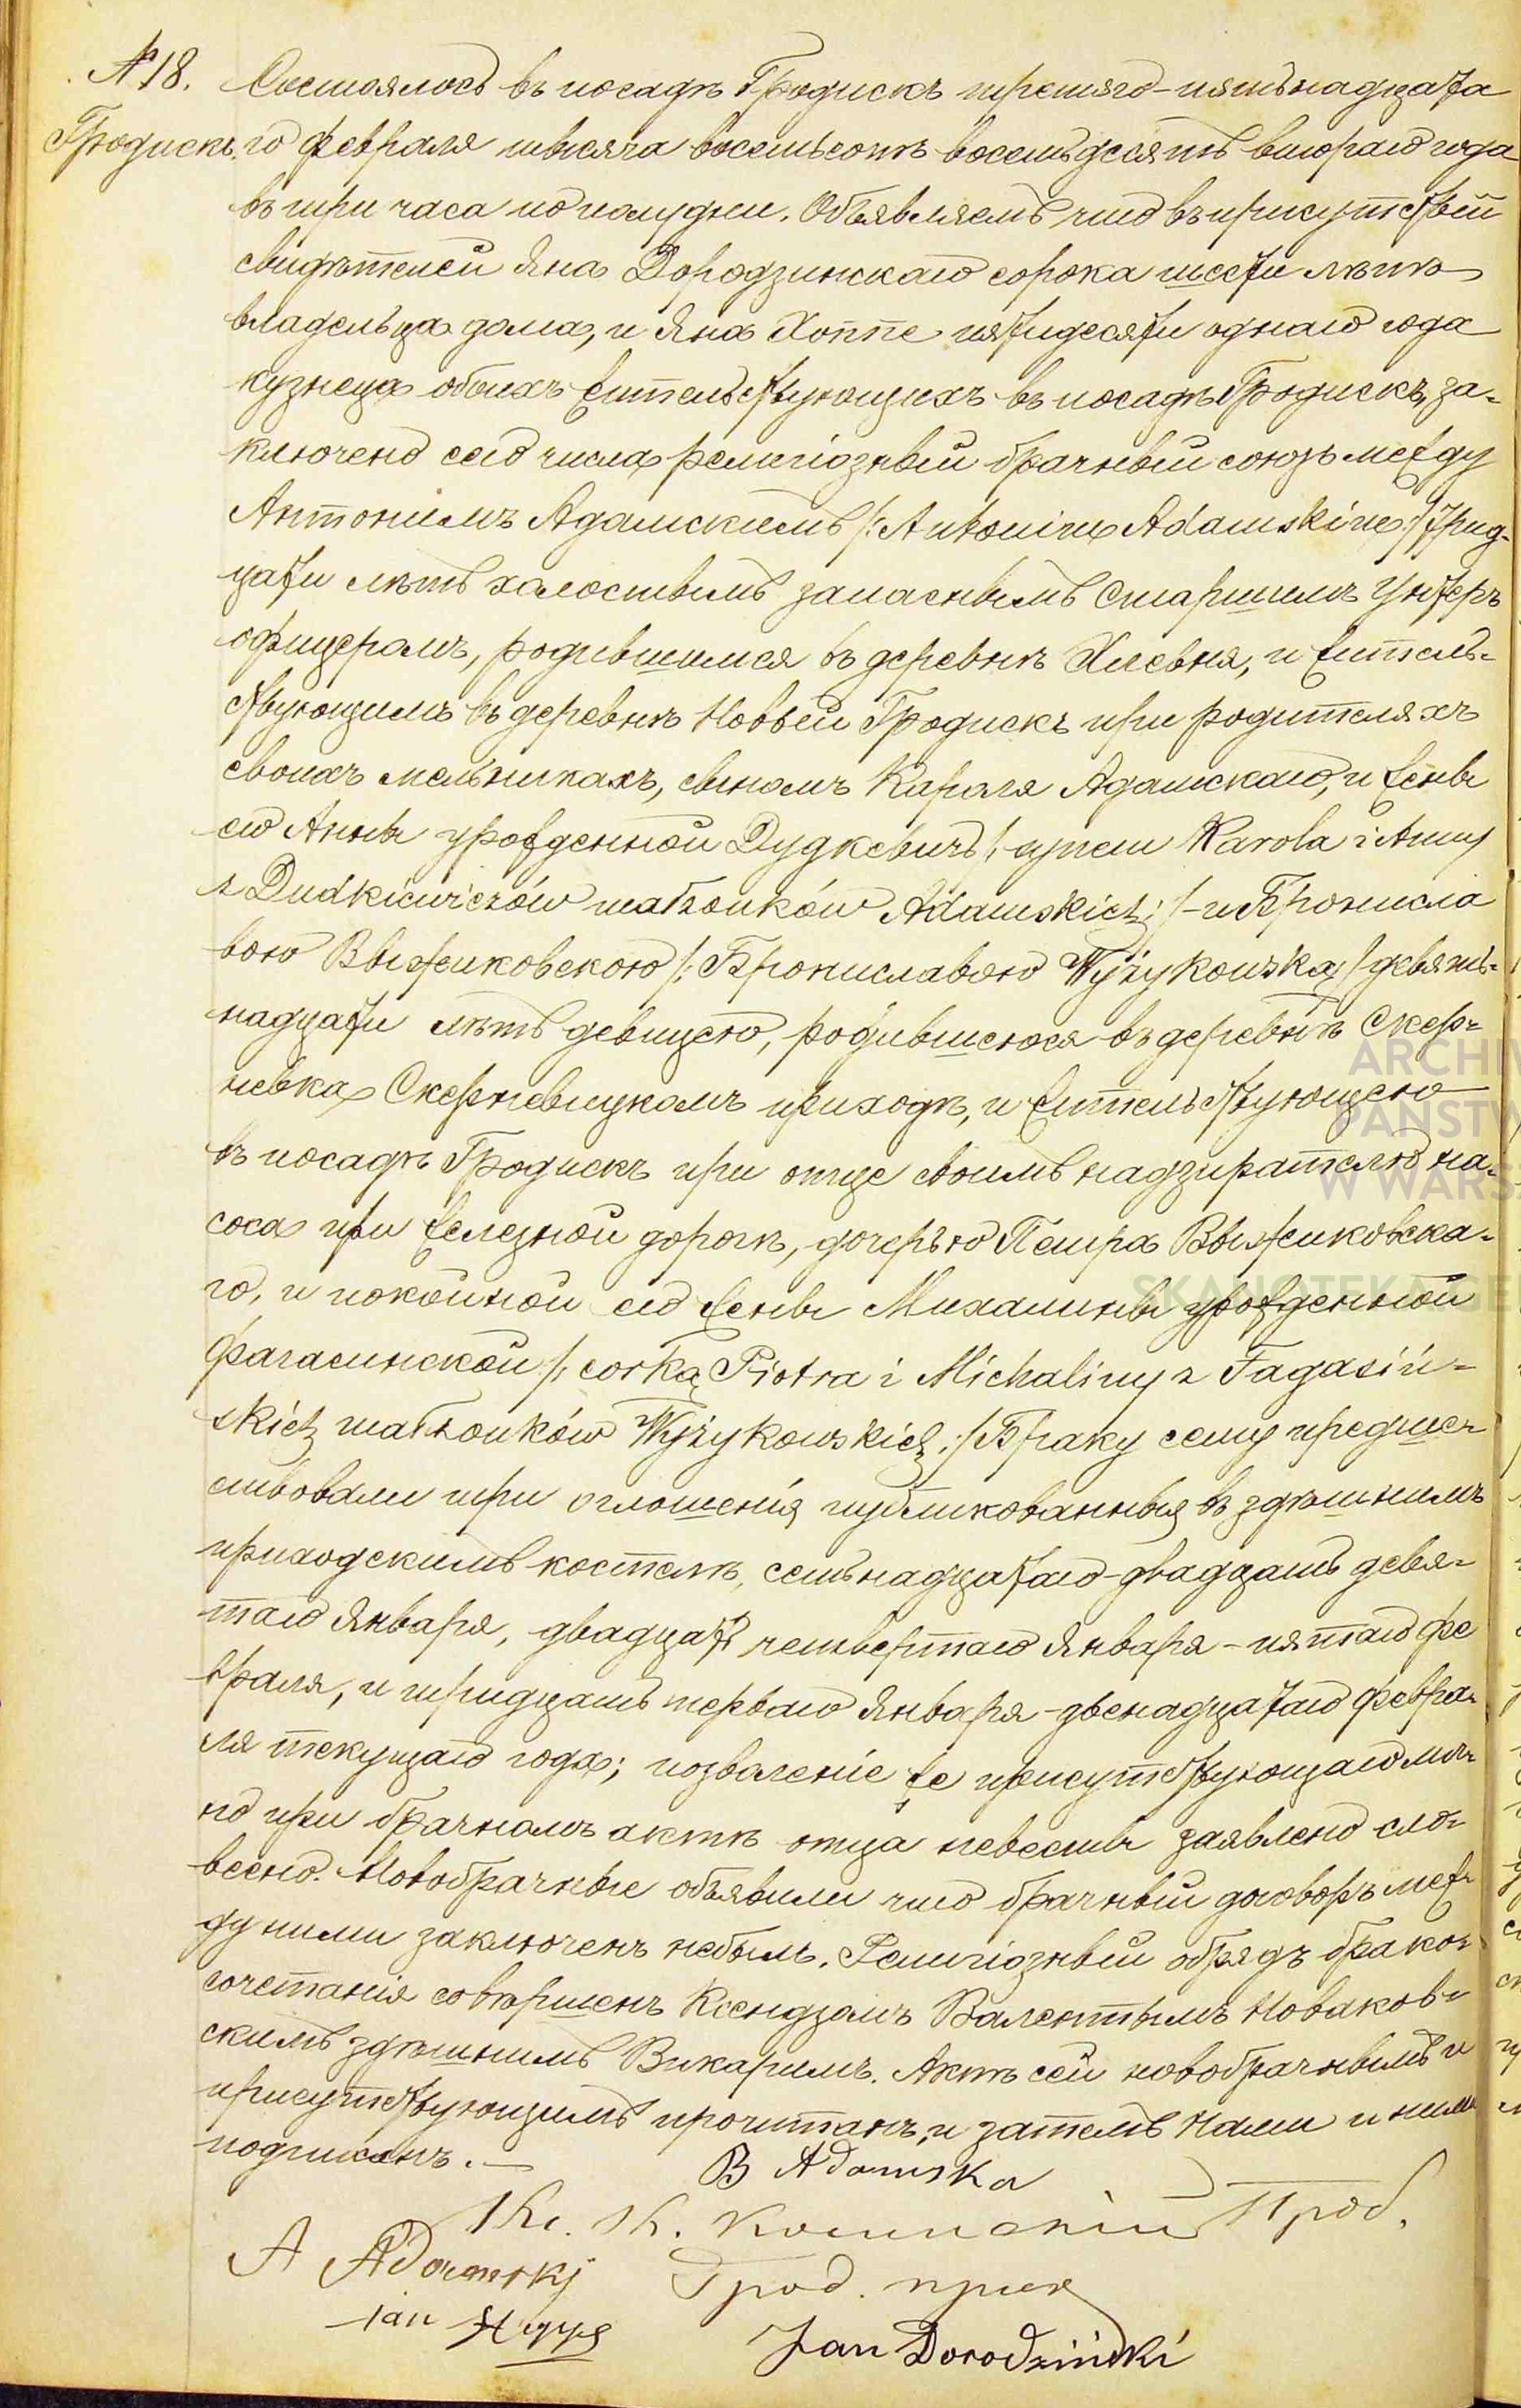 № 18.
Гродискъ.
Состоялось въ посадѣ Гродискъ третяго-пятьнадцата
го февраля тысяча восемьсотъ восемьдесятъ втораго года
въ три часа по полудни. Объявляемъ что въ присутствіи
свидѣтелей Яна Дородзинскаго сорока шести лѣтъ
владельца дома, и Яна Хоппе пятидесяти однаго года
кузнеца обоихъ жительствующихъ въ посадѣ Гродискъ, за-
ключено сего числа религіозный брачный союзъ между
Антонимъ Адамскимъ /:Antonim Adamskim:/ трид-
цати лѣтъ халостымъ запаснымъ Старшимъ Унтеръ
офицеромъ, родившимся въ деревнѣ Хлевня, и житель-
ствующимъ въ деревнѣ Новый Гродискъ при родителяхъ
своихъ мельникахъ, сыномъ Кароля Адамскаго, и жены
его Анны урожденной Дудкевичъ /: synem Karola i Anny
z Dudkiewiczów małżonków Adamskich :/ - и Брониcла
вою Выжиковскою /: Брониславою Wyżykowską / девять-
надцати лѣтъ девицею, родившеюся въ деревнѣ Скер-
невка Скерневицкомъ приходѣ, и жительствующею
въ посадѣ Гродискъ при отце своимъ надзирателю на-
соса при железной дорогѣ, дочерью Петра Выжиковска-
го, и покойной его жены Михалины урожденной
Фагасинской /: corką Piotra i Michaliny z Fagasiń-
skich małżonków Wyżykowskich :/ Браку сему предшес-
ствовали три оглошенія публикованныя въ здѣшнимъ
приходскимъ костелѣ, семьнадцатаго-двадцать девя-
таго Января, двадцать четвертаго Января - пятаго фе
враля, и тридцать перваго Января - двенадцатаго февра-
ля текущаго года; позволеніе же присутствующаго лич-
но при брачномъ актѣ отца невесты заявлено сло-
весно. Новобрачные объявили что брачный договоръ меж-
ду ними заключенъ небылъ. Религіозный обрядъ брако-
сочетанія совершенъ Ксендзомъ Валентымъ Новаков-
скимъ здѣшнимъ Викаримъ. Актъ сей новобрачнымъ и
присутствующимъ прочитанъ, и затемъ Нами и ними
подписанъ. —
B Adamska
Кс. К. Коминскій Проб.
A Adamskj
Грод. прих
Jan Hoppe
Jan Dorodziński
ARCHIW
PAŃSTW
W WARS
SKANOTEKA GE